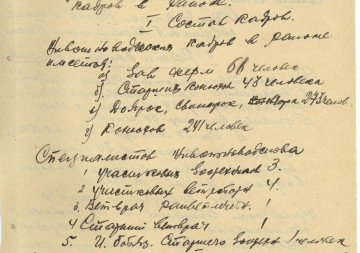 кадров в районе.
I Состав кадров.
Животноводческих кадров в районе
имеется:
а) Зав ферм 61 человек
б) Старших конюхов 43 человека
в) Доярок, свинарок, 273 челов.
г) Конюхов 241 человек
Специалистов животноводства
1 Участковых зоотехников 3.
2 Участковых ветврачей 4.
3. Ветврач 1
4 Старший ветврач 1
5. И. обяз. Старшего зоотехн 1 человек